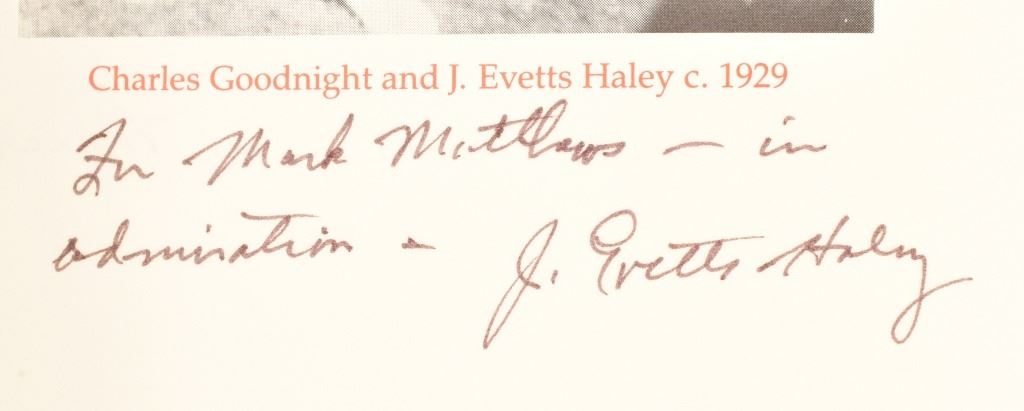 Charles Goodnight and J. Evetts Haley c. 1929
For Mark Matthews — in
admiration – J. Evetts Haley